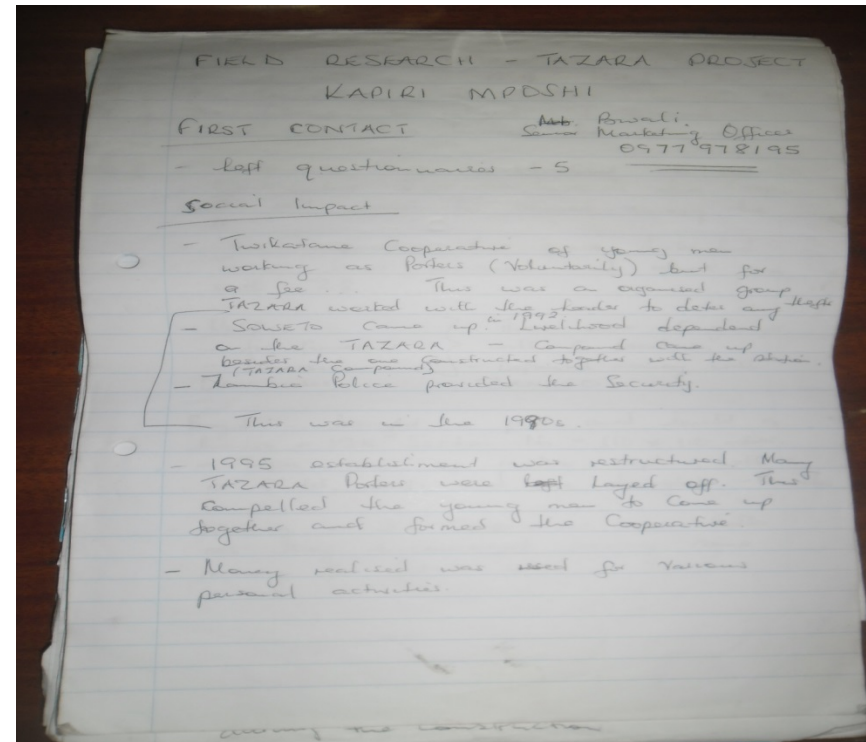 FIELD RESEARCH - TAZARA PROJECT
KAPIRI MPOSHI
FIRST CONTACT
Bwali.
Senior Marketing Officer
0977 978195
- Left questionnaires - 5
Social Impact
- Twikatane Cooperative of young men
working as Porters (Voluntarily) but for
a fee... This was an organised group
TAZARA worked with the leader to deter any thefts
- SOWETO came up in 1992. Livelihood dependend
on the TAZARA - Compound came up
besides the one constructed together with the station.
(TAZARA Compound)
- Zambia Police provided the Security.
This was in the 1990s.
- 1995 establishment was restructured Many
TAZARA Porters were layed off. This
compelled the young men to come up
together and formed the Cooperative.
- Money realised was used for various
personal activities.
during the construction